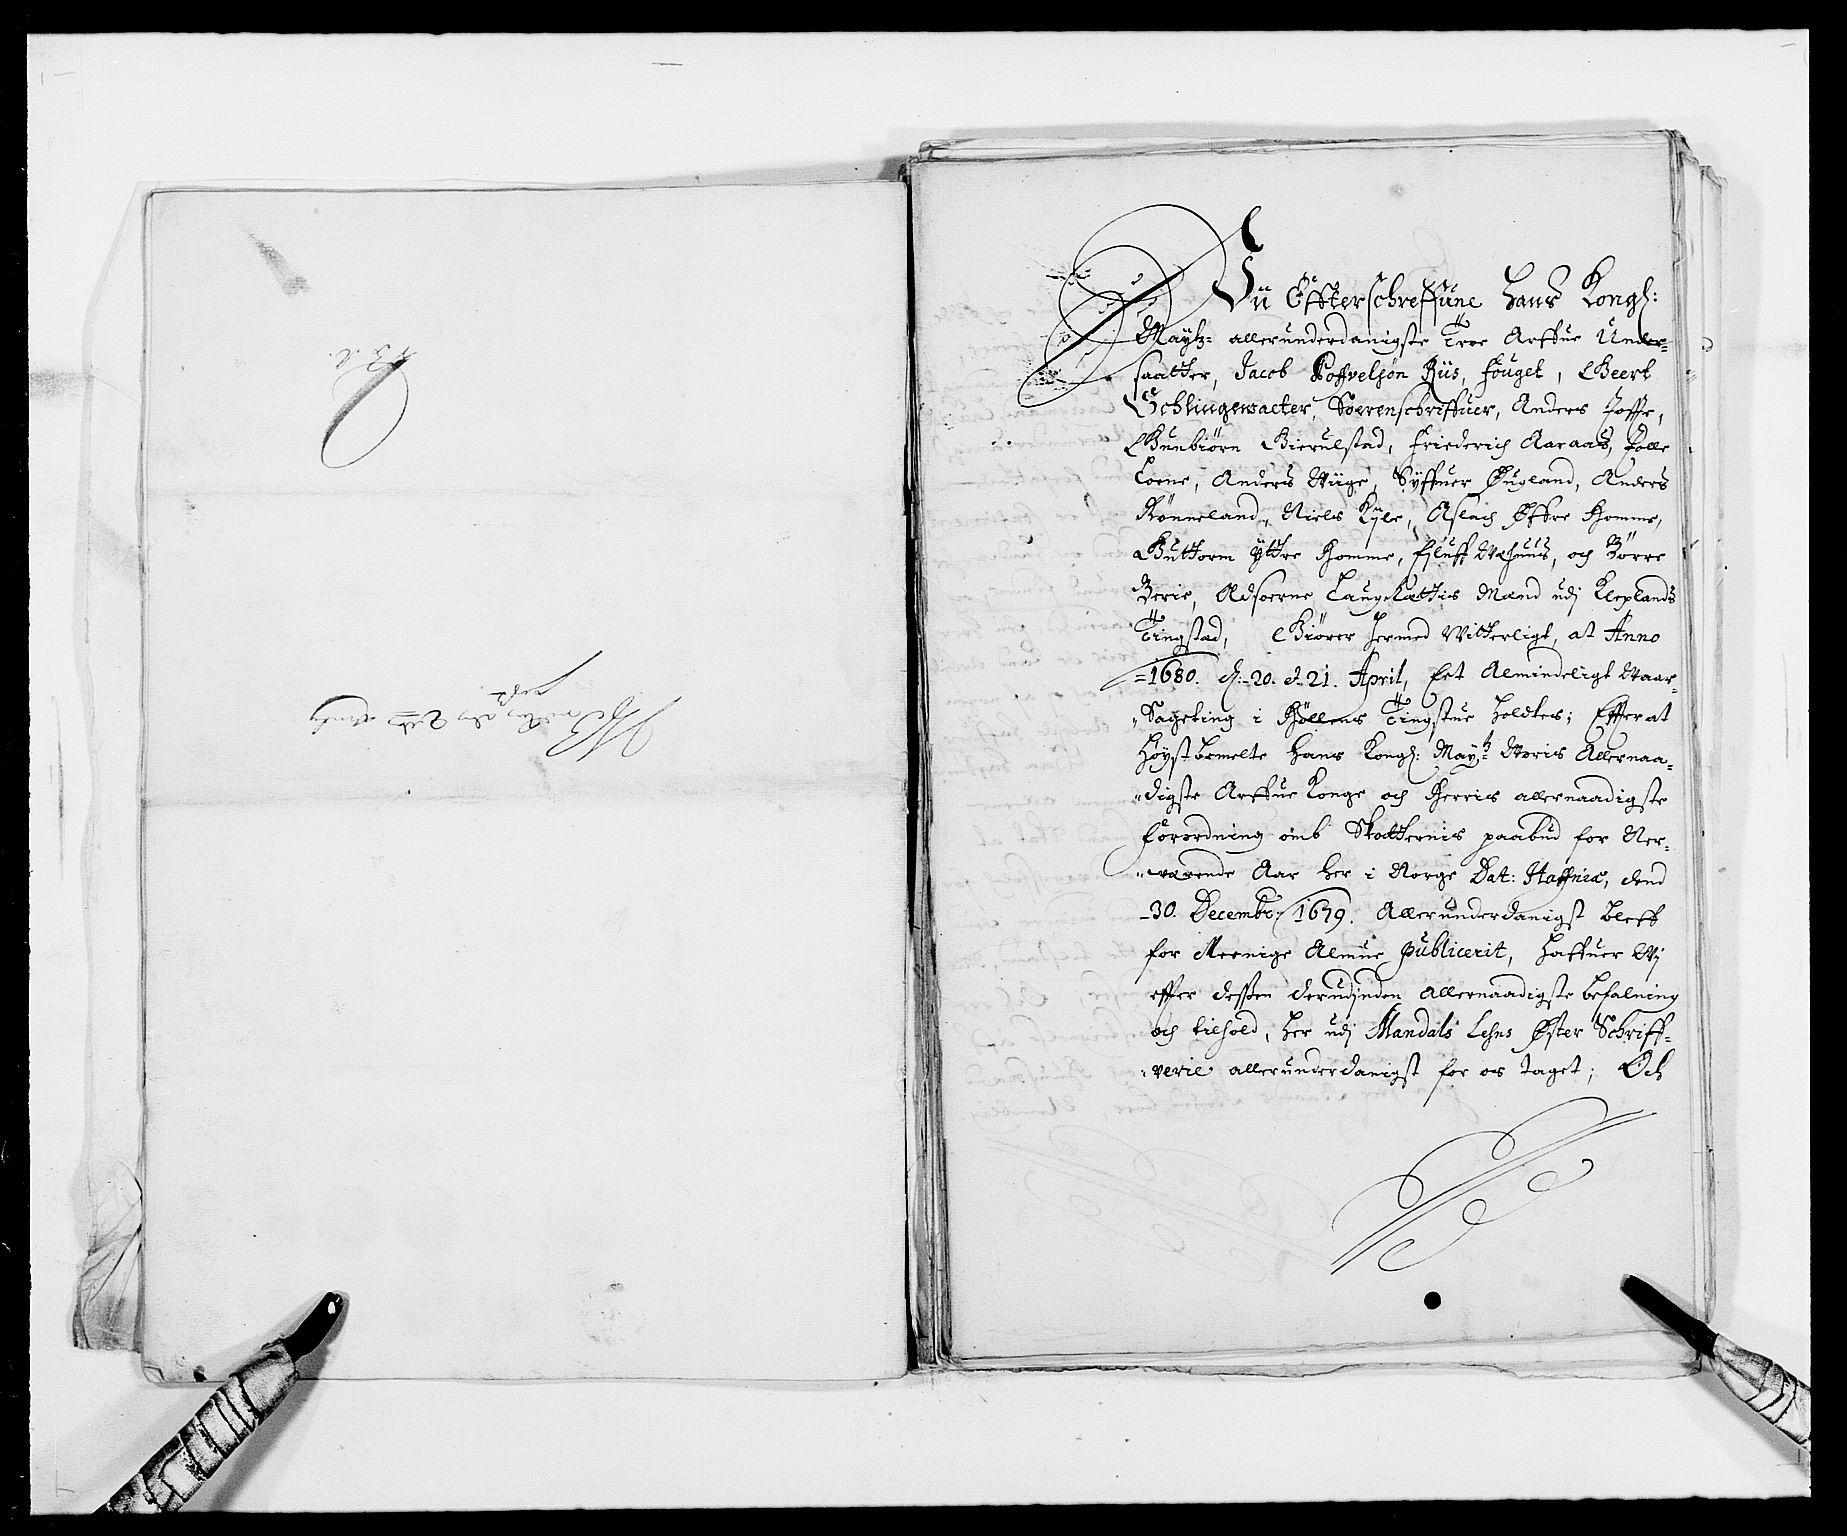 Vii Effterschreffüne Hans Kongl:
Maytz= allerunderdanigste Troe Arffue Under=
saatter, Jacob Poffvelsøn Riis, fouget, Geert
Schlingewaeter, Soerenschriffuer, Anders Joffe,
Gunbiørn Bierulstad, Friederich Aaraas, Tolle
Loene, Anders Wiige, Syffuer Øugland, Anders
Rønneland, Niels Kyle, Aslach Øffre Homme,
Guttorm Yttre Homme, Esluff Wehuus, och Børre
Berie, Edsoerne Laugrættis Mænd udj Kleplands
Tingstad, Giører hermed Witterligt, at Anno
=1680. d: 20. et 21. April, Eet Almindeligt Waar=
Sageting i Høllens Tingstue holdtes; Effter at
Høystbemelte Hans Kongl: Mayts= Woris Allernaa=
digste Arffue Konge och Herris allernaadigste
Forordning omb Skatternis paabud for Ner=
werende Aar her i Norge Dat: Haffniæ, dend
30. Decembr: 1679. Allerunderdanigst bleff
for Meenige Almue publicerit, Haffuer Wj
effter dessen derudjnden allernaadigste befalning
och tilhold, her udj Mandals Lehns Øster Schriff=
verie allerunderdanigst for os taget; Och